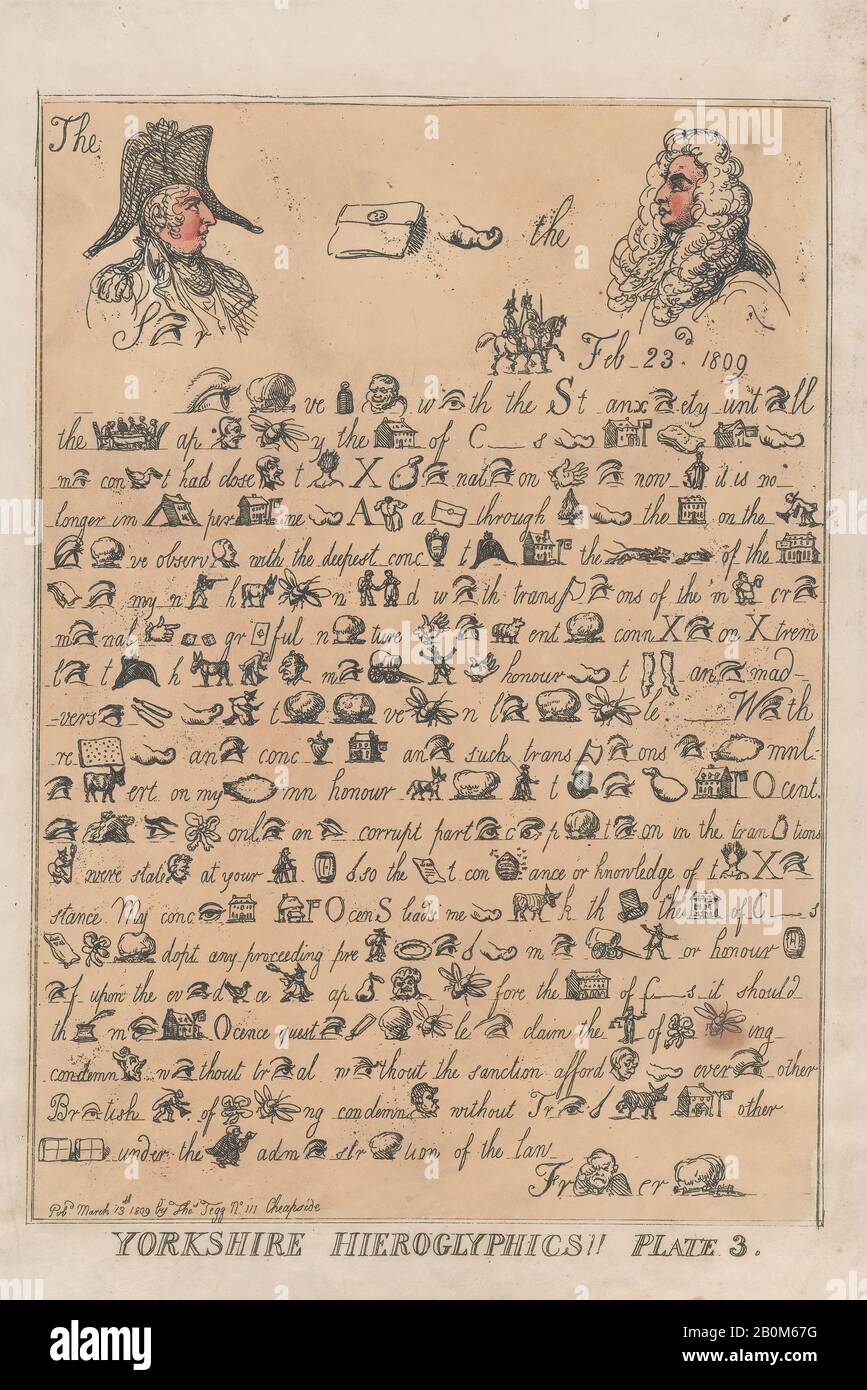 The
the
S r
Feb 23d. 1809
ve w th the St anx ety unt ll
the ap y the of C__s
m con t had close t X nat on now it is no
longer in per me A a through the on the
ve observ with the deepest conc t the of the
my n h n d w th trans ons of the m cr
m nal gr ful n ture ent conn X on Xtrem
l t h m honour t an mad-
-vers t ve n l le. __W th
re an conc an such trans ons mnl-
ert on my mn honour t Ocent.
onl an corrupt part c p t on in the tran tions
were state at your so the t con ance or knowledge of t X
stance My conc OcenS leads me k th the of C__s
dopt any proceeding pre m or honour
f upon the ev d ce ap fore the of C__s it should
th m Ocence quest le claim the of ing
condemn w thout tr al w thout the sanction afford ever other
Br tish of ng condemn without Tr other
under the adm str tion of the law
Fr er
Pubd. March 13th 1809 by Thos. Tegg No. 111 Cheapside
YORKSHIRE HIEROGLYPHICS!! PLATE 3.
alamy
Image ID: 2B0M67G
www.alamy.com